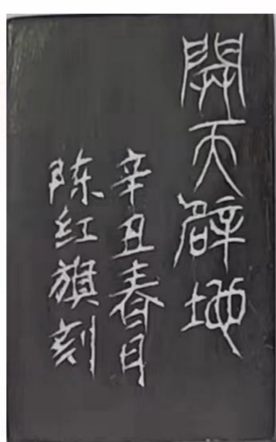 開天辟地
辛丑春日
陈红旗刻